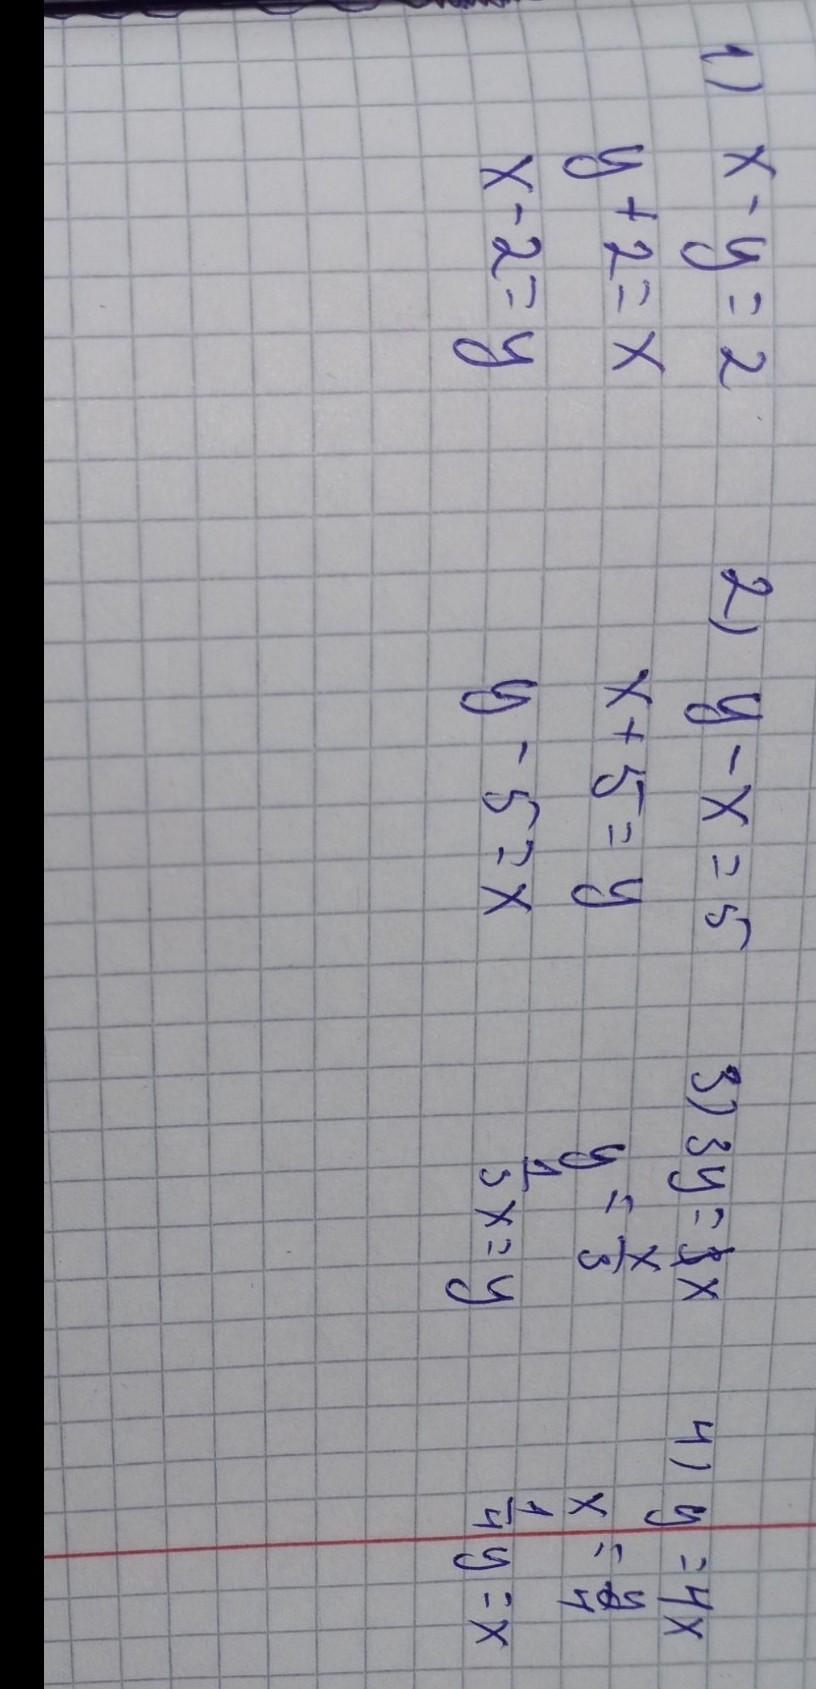 1) x - y = 2
y + 2 = x
x - 2 = y
2) y - x = 5
x + 5 = y
y - 5 = x
3) 3y = x
y = x/3
1/3 x = y
4) y = 4x
x = y/4
1/4 y = x